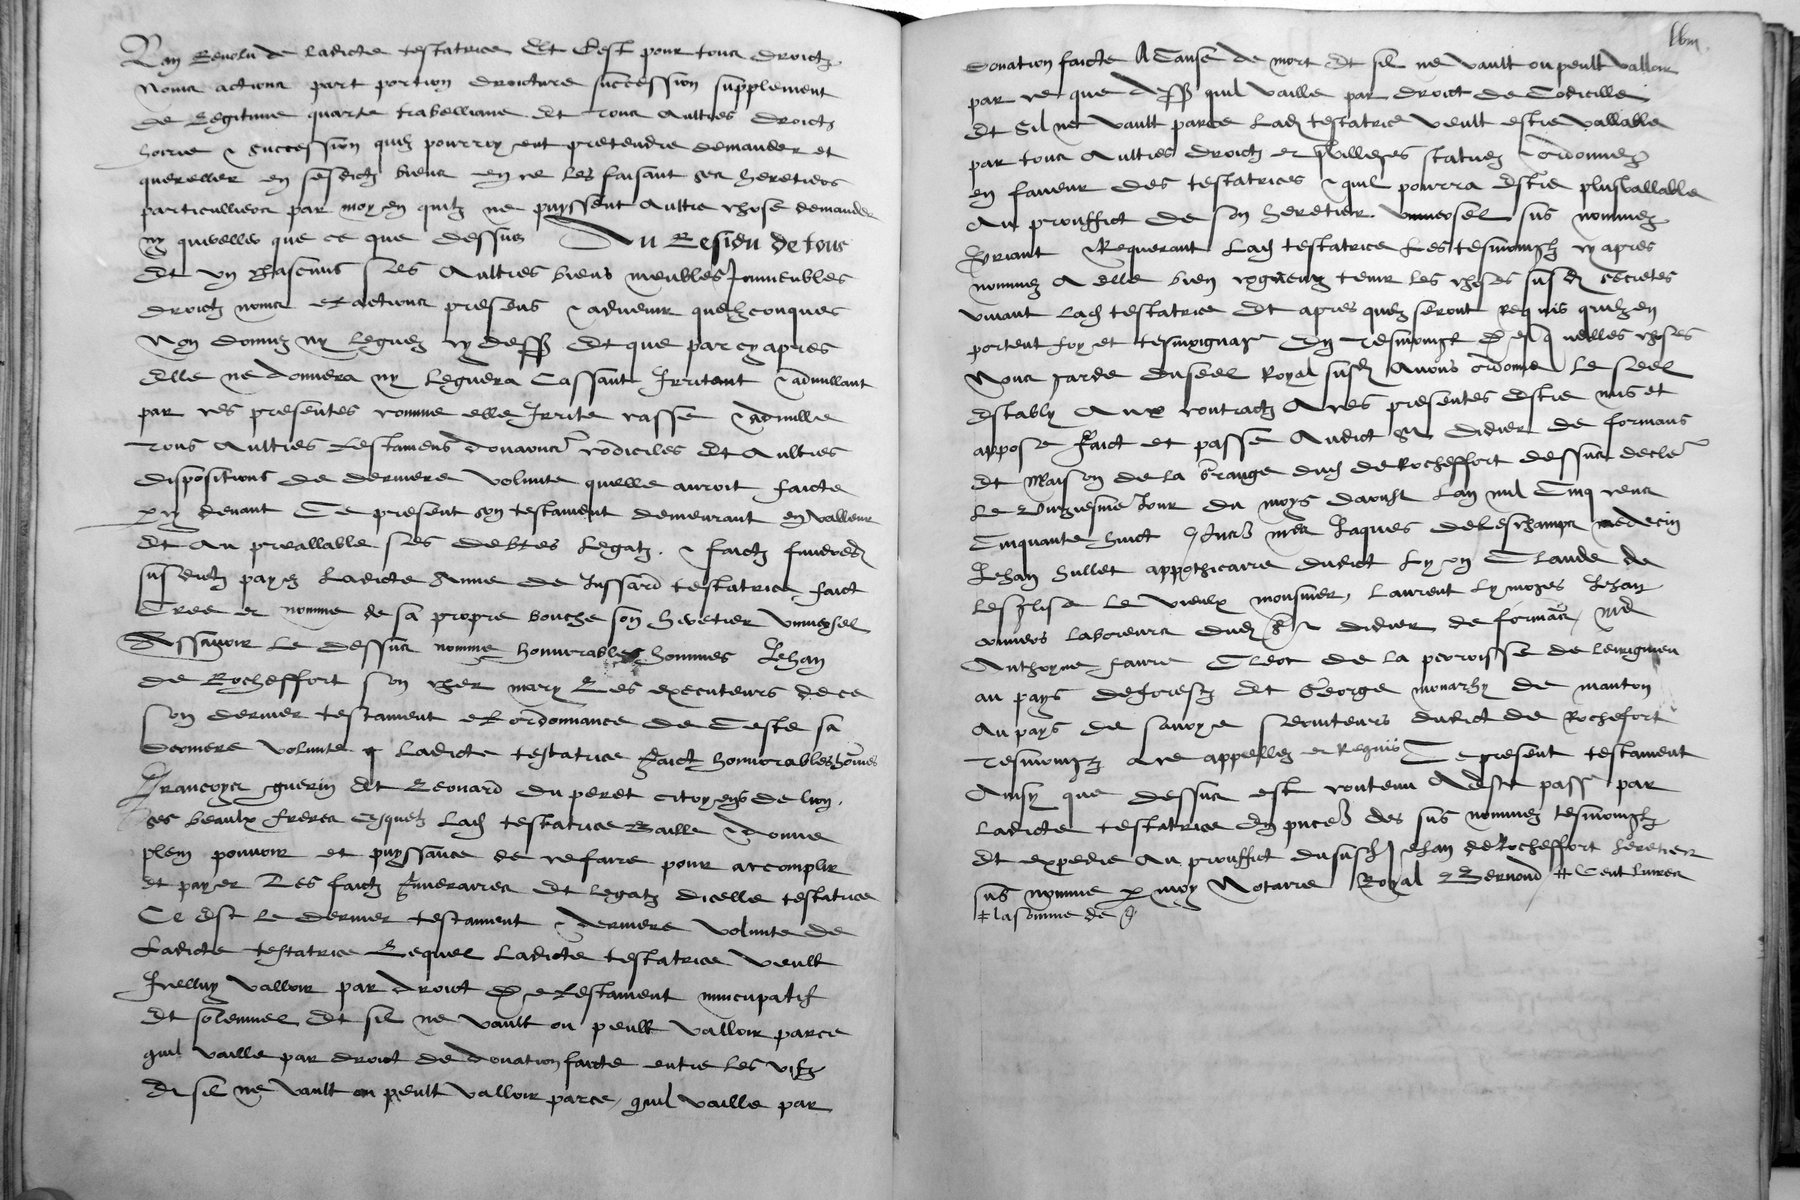 Lan revolu de ladicte testatrice Et cest pour tous droictz
noms actions part portion droicture succession supplement
de legitime quarte trabelliane Et tous aultres droictz
hoirie & succession quilz pourroyent pretendre demander et
quereller en sesdictz biens en ce les faisant ses heretiers
particulliers par moyen quilz ne puyssent aultre chose demander
ny quereller que ce que dessus Du Residu de tous
Et un chascuns ses aultres biens meubles Immeubles
droictz noms et actions presens & advenir quelzconques
Non donnez ny leguez cy dess Et que par cy apres
Elle ne donnera ny leguera Cassant Irritant & adnullant
par ces presentes comme elle Irrite casse & adnulle
Tous aultres testamens donations codiciles Et aultres
dispositions de derniere volunte quelle auroit faicte
cy devant Ce present son testament demeurant en valleur
Et au preallable ses debtes legatz & faictz funeres
susdictz payez Ladicte Anne de Jussard testatrice faict
Cree et nomme de sa propre bouche son heretier universel
Assavoir le dessus nomme honnorables hommes Jehan
de Rocheffort son cher mary Les executeurs de ce
son dernier testament et ordonnance de ceste sa
derniere volunte ladicte testatrice faict honnorables hommes
Francoys guerin Et Leonard du peret citoyens de lyon
ses beaulx freres Esquelz lad testatrice Baille & donne
plein pouvoir et puyssance de ce faire pour accomplir
et payer Les faictz funeraires Et legatz dicelle testatrice
Ce Est le dernier testament & derniere volunte de
Ladicte testatrice Lequel ladicte testatrice veult
Icelluy valloir par droict de testament nuncupatif
Et solemnel Et sil ne vault ou peult valloir parce
quil vaille par droict de donation faicte entre les vifz
Et sil ne vault ou peult valloir parce quil vaille par
donation faicte A Cause de mort Et sil ne vault ou peult valloir
par ce que dess quil vaille par droict de Codicille
Et Sil ne vault parce Lad testatrice veult estre vallable
par tous aultres droictz et previlleges statuez & ordonnez
en faveur des testatrices & quil pourra Estre plus vallable
Au prouffict de son heretier universel sus nomme
priant & Requerant Lad testatrice Les tesmoingtz cy apres
nommez A elle bien cogneuz tenir les choses susd secretes
vivant lad testatrice Et apres quilz seront requis quilz en
portent foy et tesmoignage En tesmoing desquelles choses
Nous garde du seel Royal susd Avons ordonne Le seel
Estably Aux contractz A ces presentes Estre mis et
appose Faict et passe Audict St Didier de formans
Et Maison de la Grange dud de Rocheffort dessus decler
Le Jour du moys daoust Lan mil Cinq cens
Cinquante huict Jaques deleschamps medecin
Jehan hullet appothicaire dudict Lyon Claude de
Leglise le vieulx monsnier, Laurent lymoges Jehan
laboreurs dud St didier de formans, me
Anthoyne faure Clerc de la parroisse de
au pays de forestz Et George monarhy de manton
Au pays de savoye serviteurs dudict de Rochefort
Tesmoingtz A ce appellez et Requis Ce present testament
Ainsy que dessus est contenu A este passe par
Ladicte testatrice En pnce des sus nommez tesmoingtz
Et expedie Au prouffict du susd Jehan de Rocheffort heretier
sus nomme p moy Notaire Royal Bernond ‡ Cent livres
‡ la somme de